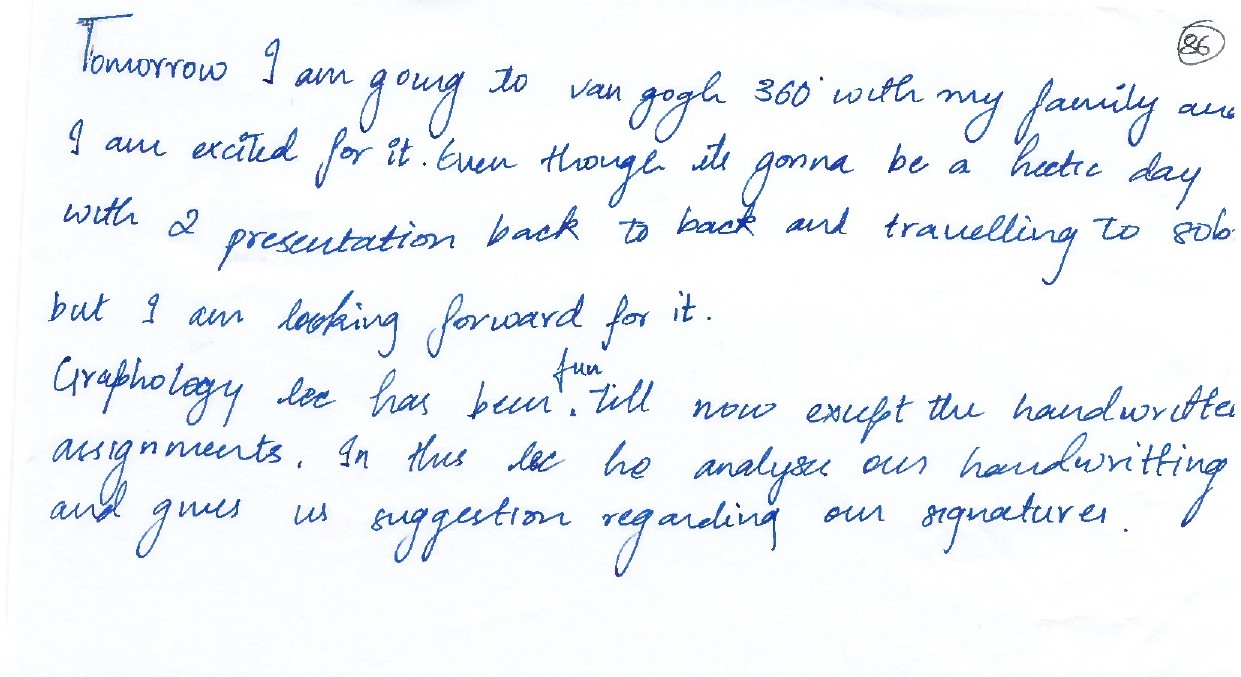 86
Tomorrow I am going to van gogh 360° with my family and
I am excited for it. Even though its gonna be a hectic day
with 2 presentation back to back and travelling to sobo
but I am looking forward for it.
fun
Graphology lec has been. Till now except the handwritten
assignments. In this lec he analyse our handwritting
and gives us suggestion regarding our signatures.